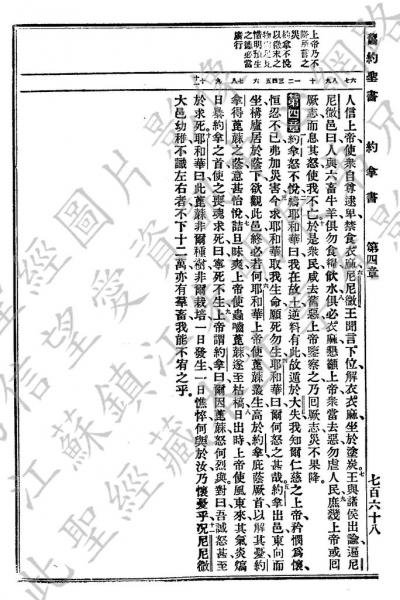 舊約聖書 約拿書 第四章
七百六十八
上帝乃不
降所言之
災
約拿不悅
以微末之
物
惜明預生
之德必當
廣行
人信上帝使衆自尊逮卑禁食衣麻尼尼微王聞言下位解衣衣麻坐於塗炭王與諸侯出諭遍尼
尼微邑曰人與六畜牛羊俱勿食糧飲水俱必衣麻懇籲上帝衆當去惡勿虐人民庶幾上帝或回
厥志而息其怒使我不亡於是衆民咸去舊惡上帝鑒察之乃回厥志災不果降
第四章約拿怒不悅禱耶和華曰我在故土逆料有此故遁於大失我知爾仁慈之上帝矜憫爲懷
恒忍不已弗加災害今求耶和華取我生命願死勿生耶和華曰爾何怒之甚哉約拿出邑東向而
坐構廬居於蔭下欲觀此邑終必若何耶和華上帝使蓖蔴叢生高於約拿庇蔭厥首以解其憂約
拿得蓖蔴之蔭意甚怡悅詰旦昧爽上帝使蟲嚙蓖蔴遂至枯槁日出時上帝使風東來其氣炎熇
日暴約拿之首使之喪魂求死曰寧死不生上帝謂約拿曰爾因蓖蔴怒何烈與對曰吾誠怒甚至
於求死耶和華曰此蓖蔴非爾種樹非爾栽培一日發生一日憔悴何與於汝乃懷憂乎况尼尼微
大邑幼稚不識左右者不下十二萬亦有羣畜我能不宥之乎